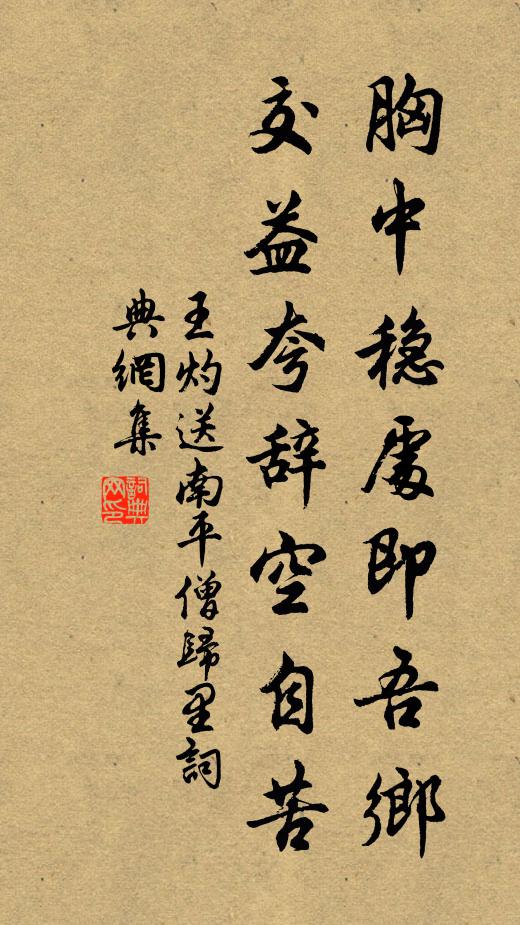 胸中稳處即吾鄉
交益夸辞空自苦
王灼送南平僧歸里詞
典網集
詞典
网印